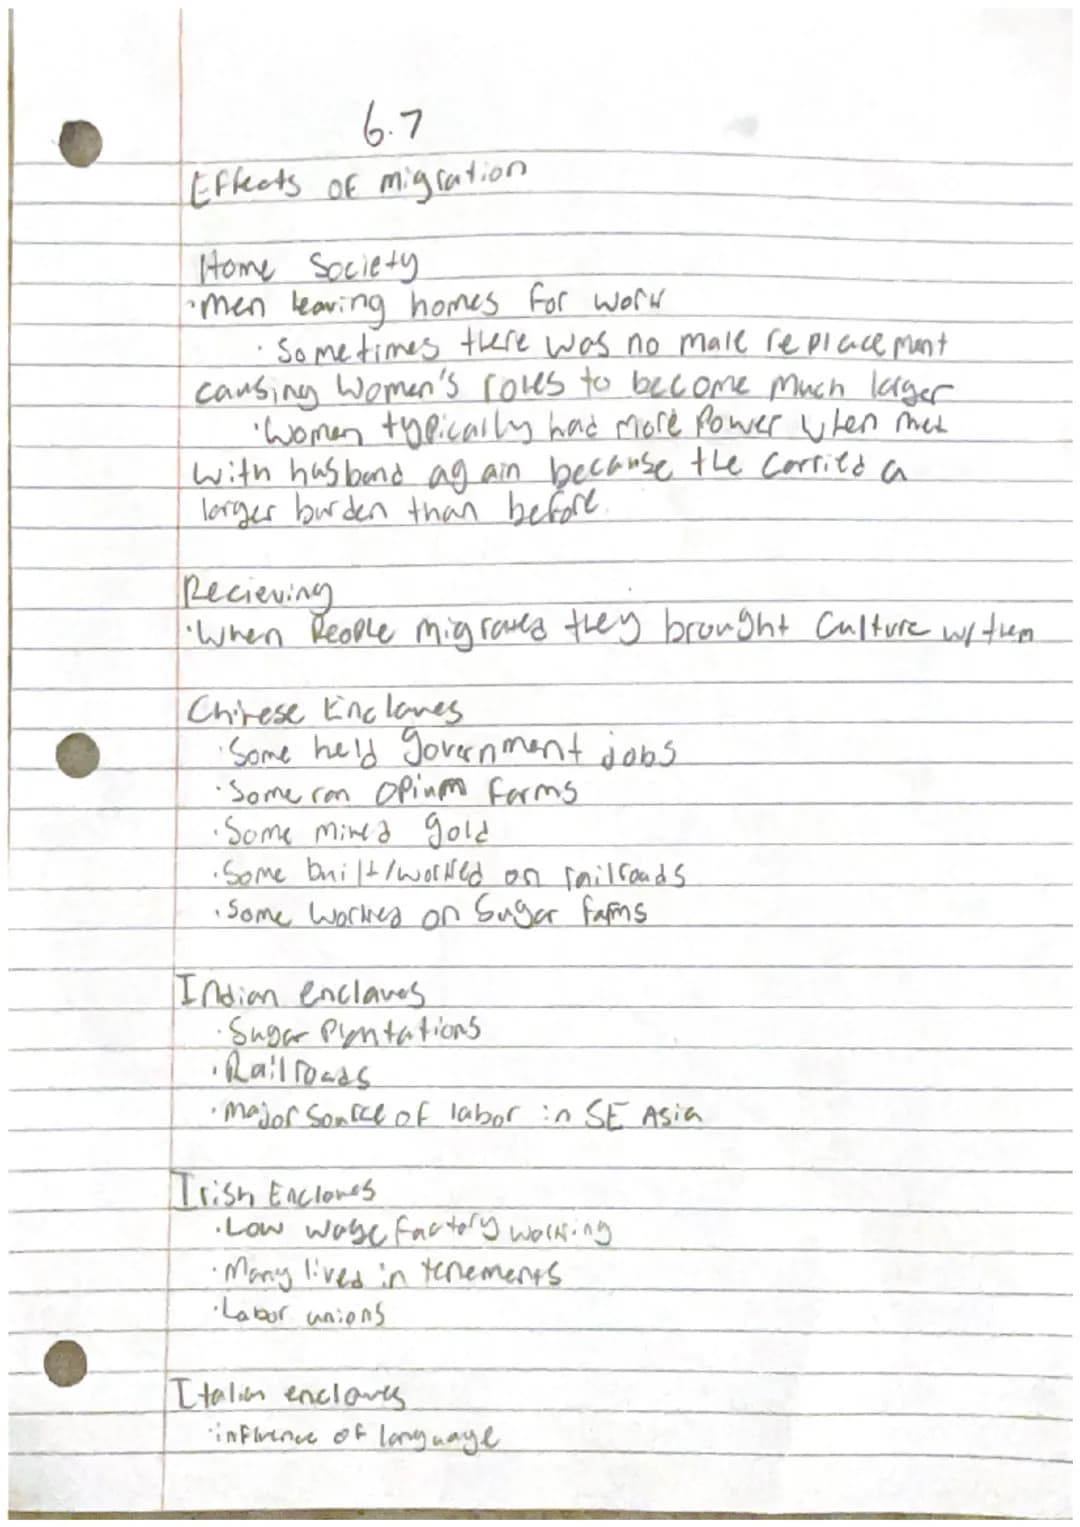 6.7
Effects of migration
Home Society
·Men leaving homes for work
·Sometimes there was no male replacement
causing women's roles to become much larger
·Women typically had more power when met
with husband again because the carried a
larger burden than before.
Recieving
·When People migrated they brought Culture w/ them
Chinese Enclaves
·Some held government jobs
·Some ran opium farms
·Some mined gold
·Some built/worked on railroads
·Some worked on Sugar farms
Indian enclaves
·Sugar Plantations
·Railroads
·Major source of labor in SE Asia
Irish Enclaves
·Low wage factory working
·Many lived in tenements
·Labor unions
Italian enclaves
·influence of language